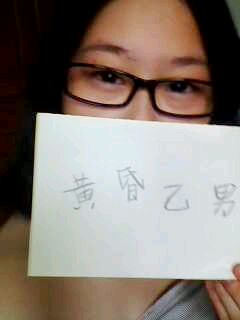 黄昏乙男